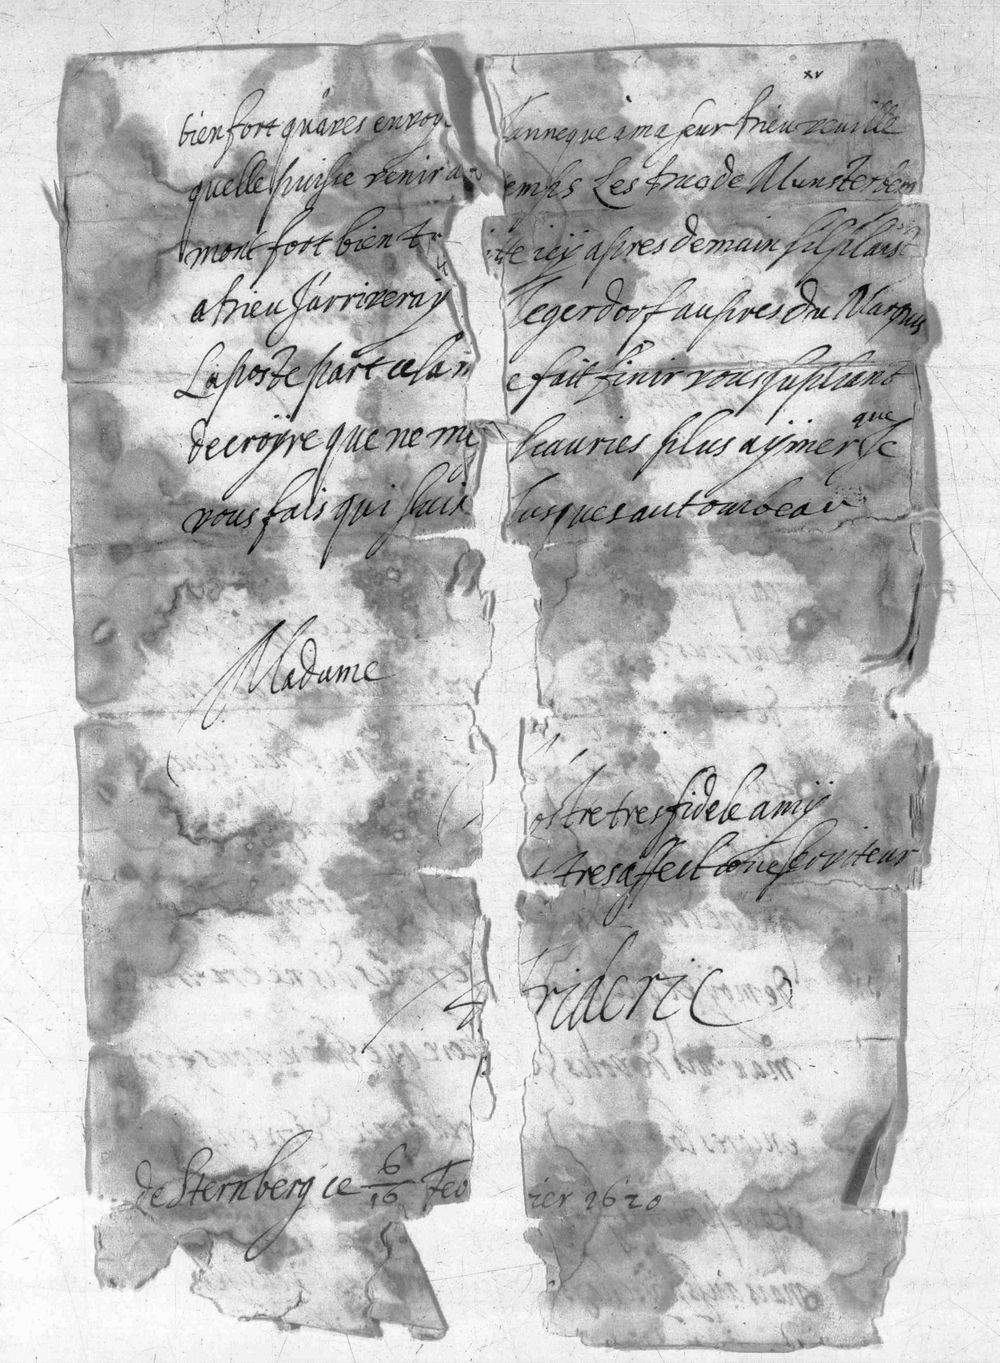 xv
bienfort quaves envoy anneque a ma seur Dieu veuille
quelle puisse venir a emps Les de Munsterbem
mont fort bien tr ite icy apres demain sil plaist
a Dieu J'arriveray Iegerdorf aupres du Marquis
La poste part cela m e fait finir vous supliant
de croyre que ne me scauries plus aymer que Je
vous fais qui suis Jusques au tombeau
Madame
ostre tres fidele amy
tres affectione serviteur
Frideric
de Sternberg ce 6/16 Feb ier 1620